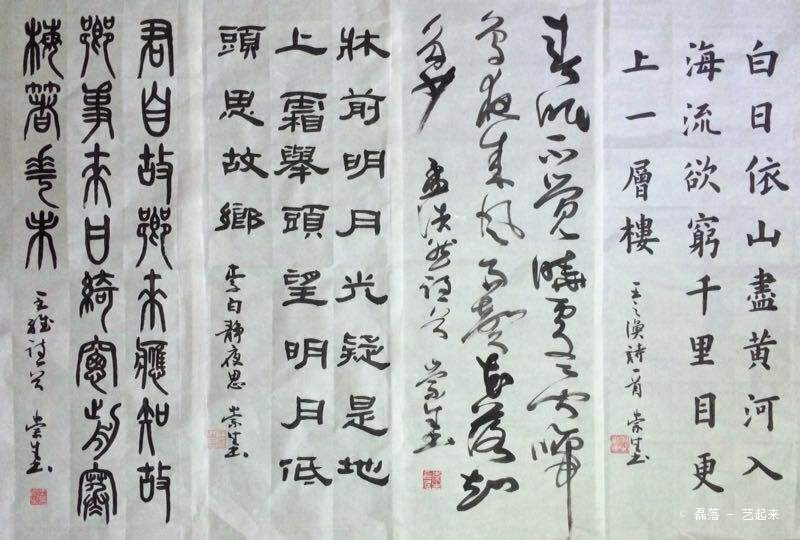 白日依山盡黄河入
海流欲窮千里目更
上一層樓
王之渙詩一首 崇生书
春眠不觉曉處處聞啼
鳥夜来風雨聲花落知
多少
孟浩然诗一首 崇生书
牀前明月光疑是地
上霜舉頭望明月低
頭思故鄉
李白靜夜思 崇生书
君自故鄉來應知故
鄉事來日綺窗前寒
梅著花未
王維诗一首 崇生书
© 磊落 - 艺起来